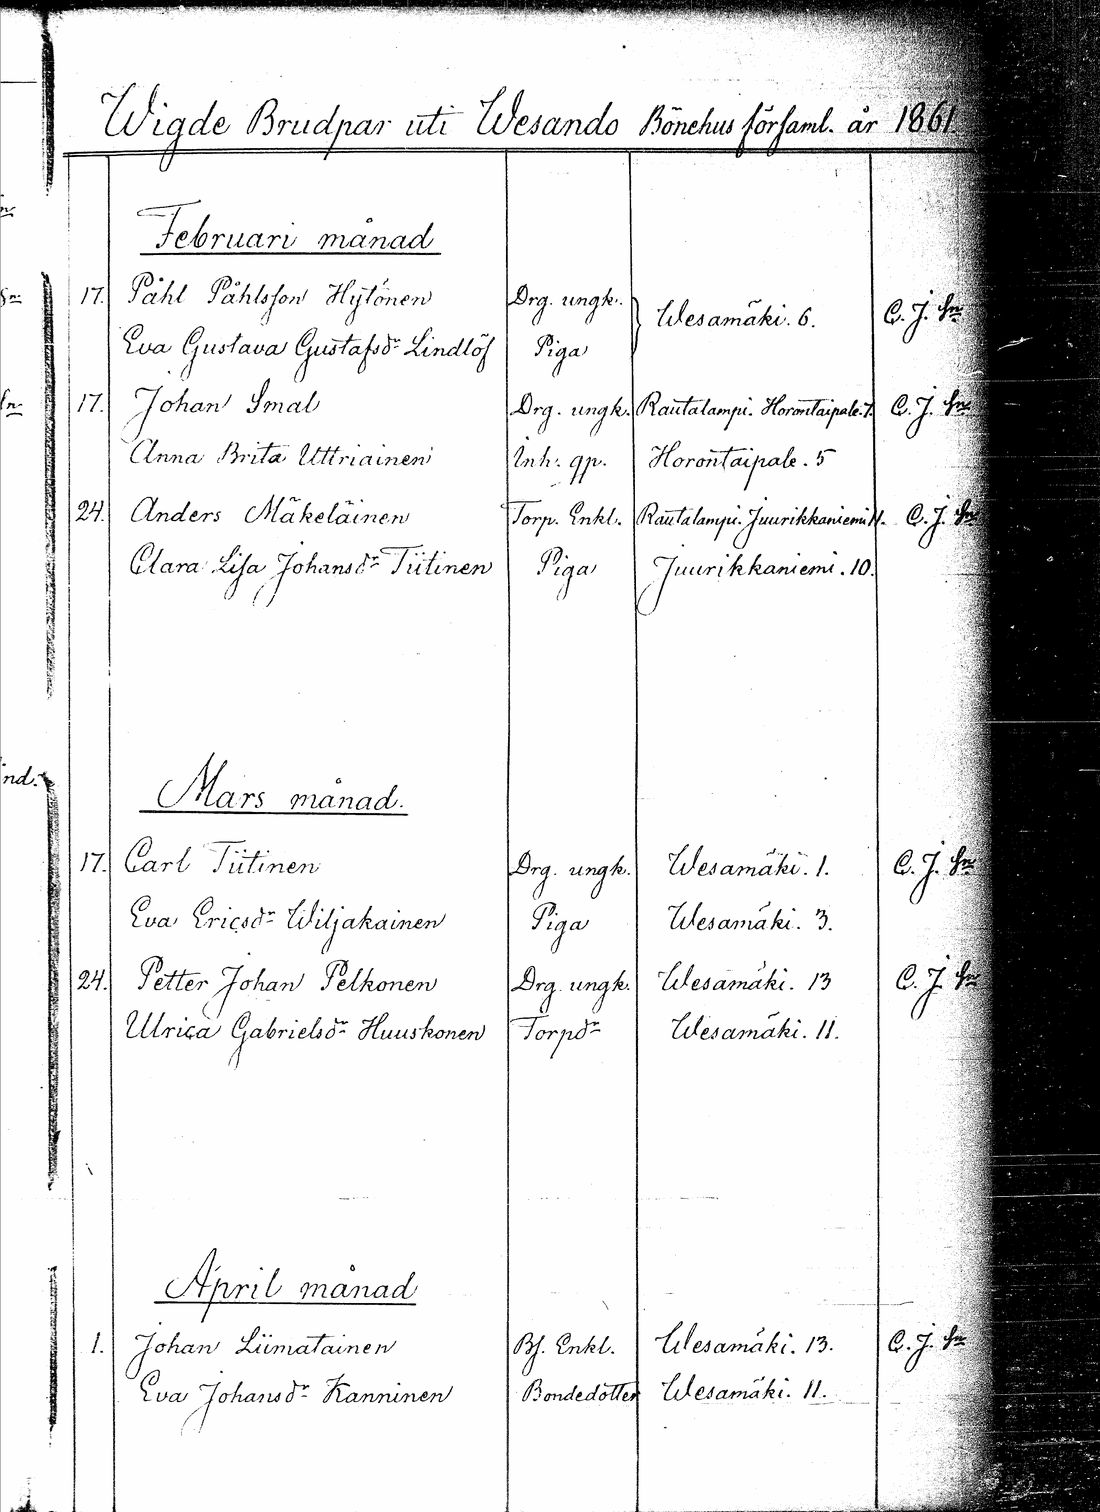 Wigde Brudpar uti Wesando Bönehus församl. år 1861.
Februari månad
17. Påhl Påhlsson Hytönen Drg. ungk. Wesamäki. 6. C. J. Sn
Eva Gustava Gustafsdr Lindlöf Piga
17. Johan Smal Drg. ungk. Rautalampi. Horontaipale. 7. C. J. Sn
Anna Brita Uttriainen Inh. qp. Horontaipale. 5
24. Anders Mäkeläinen Torp. Enkl. Rautalampi. Juurikkaniemi 11. C. J. Sn
Clara Lisa Johansdr Tiitinen Piga Juurikkaniemi. 10.
nd.
Mars månad.
17. Carl Tiitinen Drg. ungk. Wesamäki. 1. C. J. Sn
Eva Ericsdr Wiljakainen Piga Wesamäki. 3.
24. Petter Johan Pelkonen Drg. ungk. Wesamäki. 13 C. J. Sn
Ulrica Gabrielsdr Huuskonen Torpdr Wesamäki. 11.
April månad
1. Johan Liimatainen Bf. Enkl. Wesamäki. 13. C. J. Sn
Eva Johansdr Kanninen Bondedotter Wesamäki. 11.